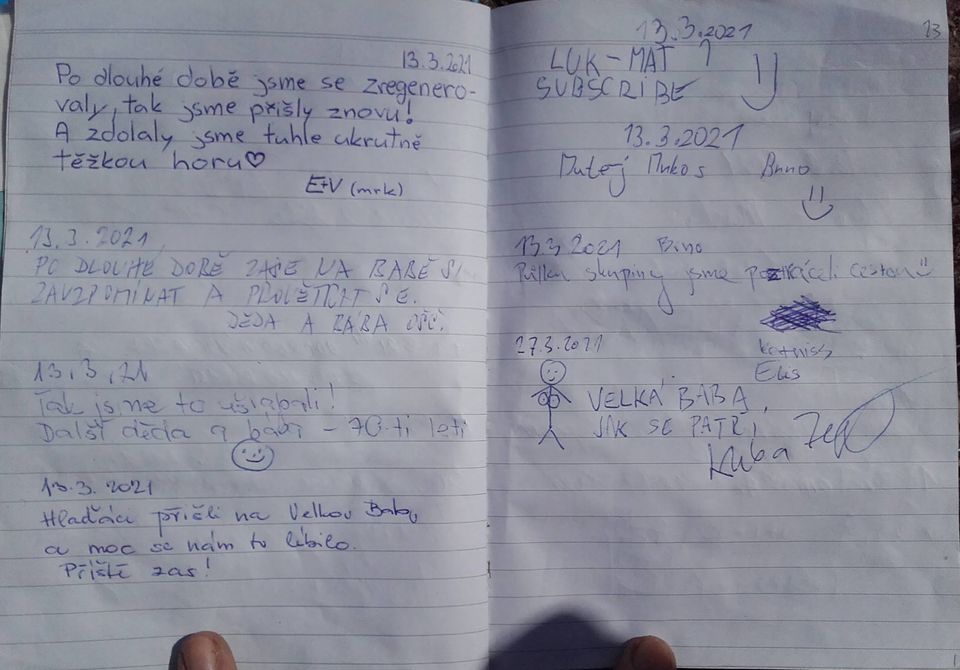 13.3.2021
Po dlouhé době jsme se zregenero-
valy, tak jsme přišly znovu!
A zdolaly jsme tuhle ukrutně
těžkou horu♡
E+V (mrk)
13.3.2021
PO DLOUHÉ DOBĚ ZASE NA BABĚ SI
ZAVZPOMÍNAT A
DĚDA A BÁBA
13.3.21
Tak jsme to ušlapali!
Další děda a bába - 70-ti letí
13.3. 2021
přišli na Velkou Babu
a moc se nám to líbilo.
Příště zas!
23
13.3.2021
LUK-MAT
SUBSCRIBE
13.3.2021
Matěj Brno
13.3 2021 Brno
skupiny jsme cestou
katniss
27.3.2021
VELKÁ BABA,
JAK SE PATŘÍ
Kuba